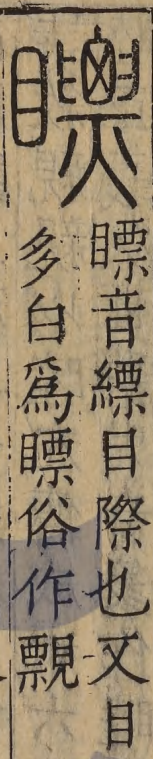 瞟
瞟音縹目際也又目
多白為瞟俗作覭